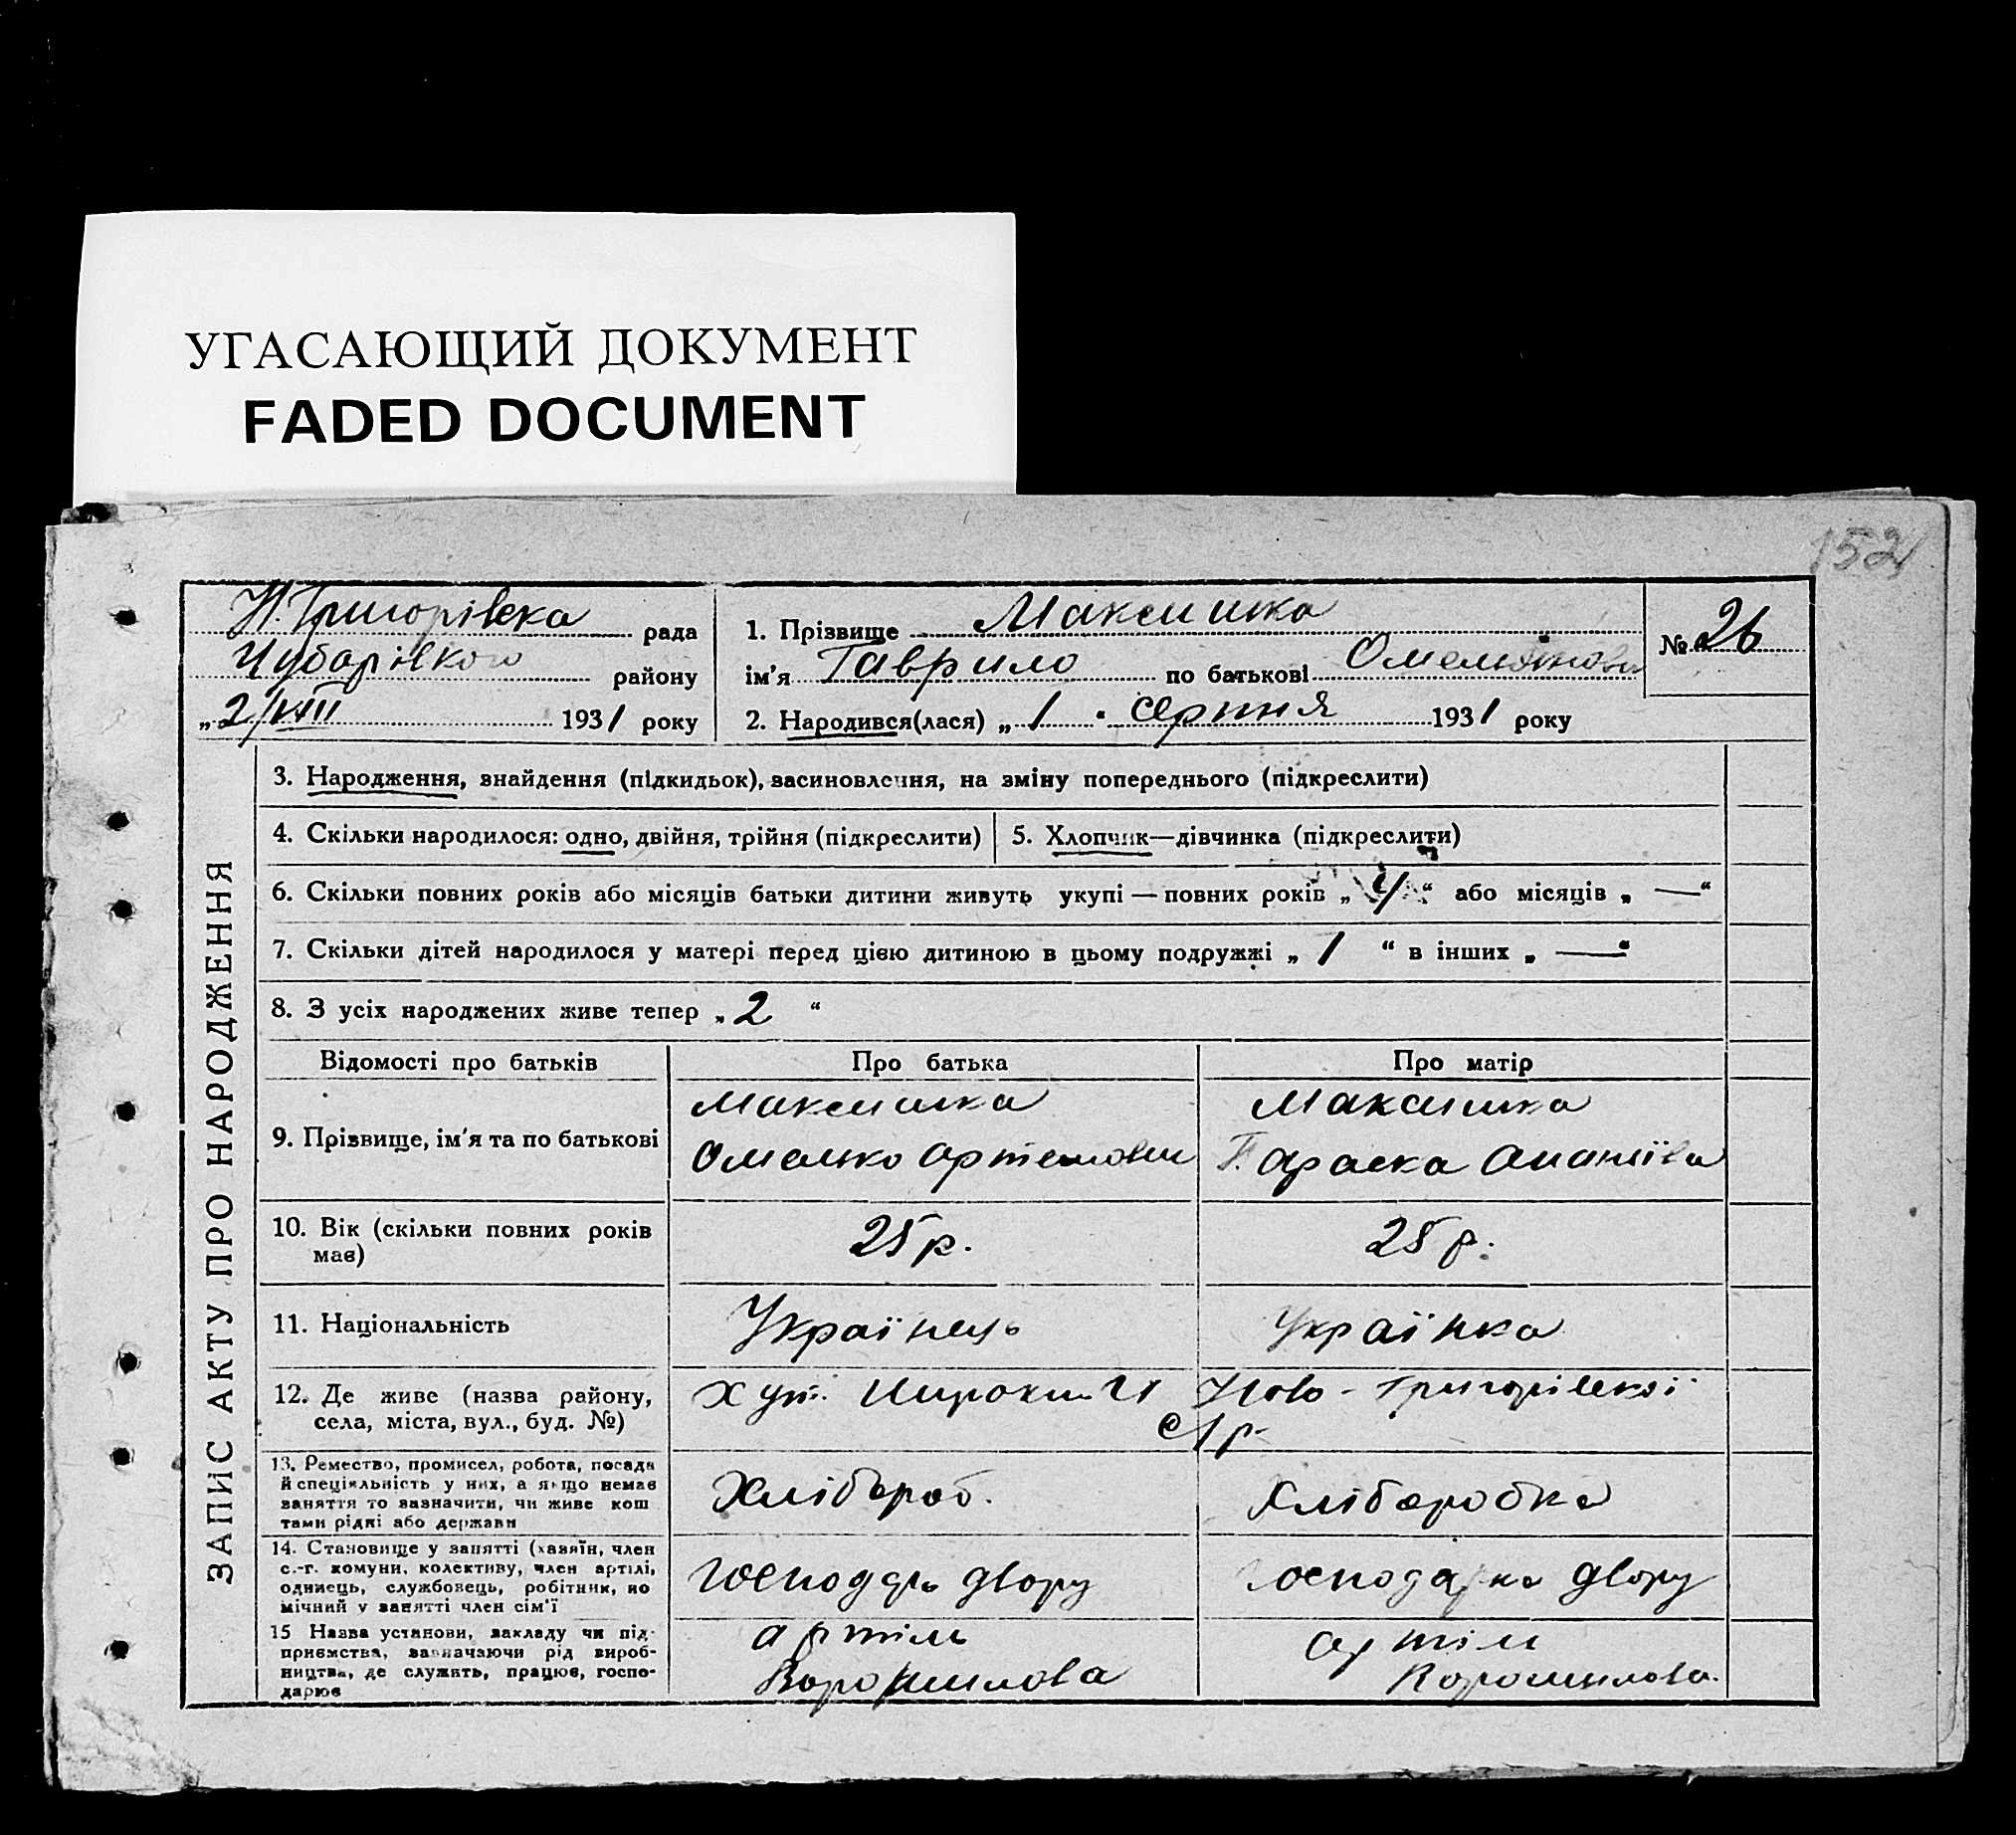 УГАСАЮЩИЙ ДОКУМЕНТ
FADED DOCUMENT
152
Н. Григорівска рада
Чубарівкого району
„2/VIII 1931 року
1. Прізвище Максимка
ім'я Гаврило по батькові Омелянови
2. Народився(лася) „1" серпня 1931 року
№ 26
ЗАПИС АКТУ ПРО НАРОДЖЕННЯ
3. Народження, знайдення (підкидьок), засиновлення, на зміну попереднього (підкреслити)
4. Скільки народилося: одно, двійня, трійня (підкреслити)
5. Хлопчик—дівчинка (підкреслити)
6. Скільки повних років або місяців батьки дитини живуть укупі — повних років „ 4 “ або місяців „ — “
7. Скільки дітей народилося у матері перед цією дитиною в цьому подружжі „ 1 “ в інших „ — “
8. З усіх народжених живе тепер „ 2 “
Відомості про батьків Про батька Про матір
9. Прізвище, ім'я та по батькові
Максимка
Омелько Артемович
Максимка
Параска Ананіїва
10. Вік (скільки повних років має)
25 р.
25 р.
11. Національність
Українець
Українка
12. Де живе (назва району, села, міста, вул., буд. №)
Хут. Широкий Ново-Григорівскої
с/р.
13. Ремество, промисел, робота, посада
й спеціяльність у них, а якщо немає
заняття то зазначити, чи живе кош
тами рідні або держави
Хлібороб.
Хліборобка
14. Становище у занятті (хазяїн, член
с.-г. комуни, колективу, член артілі,
одинець, службовець, робітник, по
мічний у занятті член сім'ї
господарь двору
господарка двору
15 Назва установи, закладу чи під-
приємства, зазначаючи рід вироб-
ництва, де служить, працює, госпо-
дарює
артіль
Ворошилова
артіль
Ворошилова.